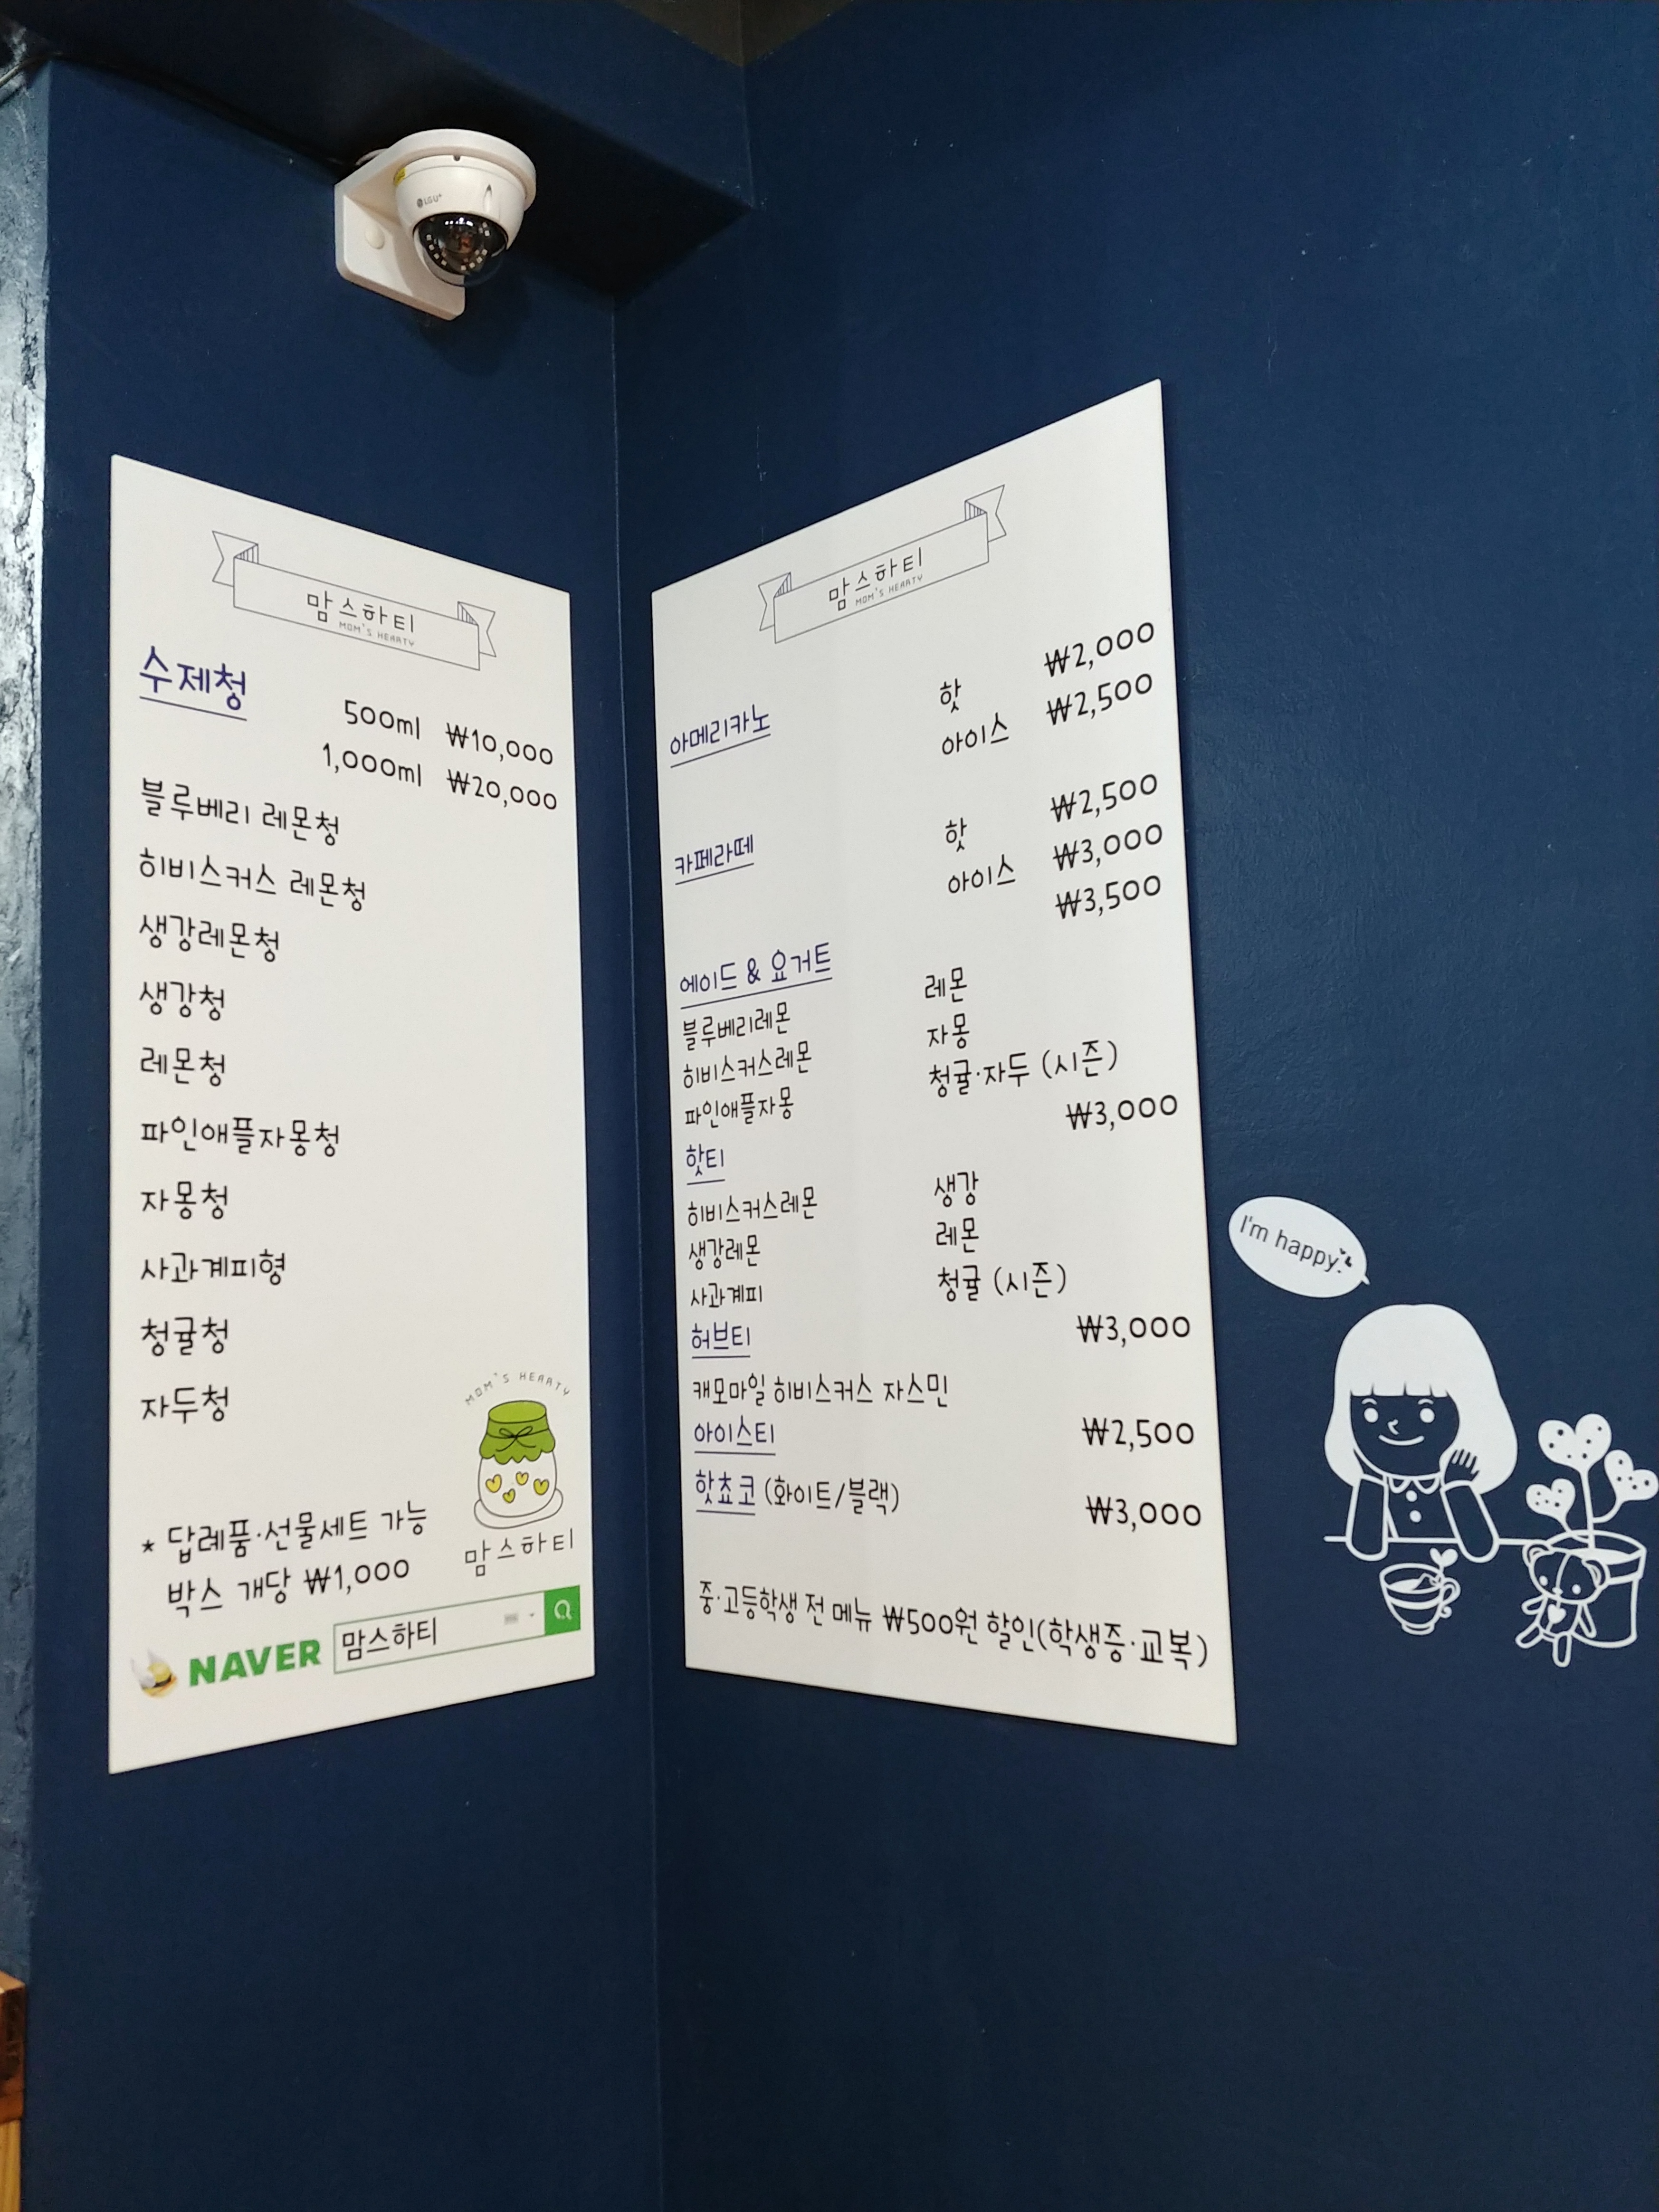 LG U+
맘스하티
MOM'S HEARTY
수제청
500ml ₩10,000
1,000ml ₩20,000
블루베리 레몬청
히비스커스 레몬청
생강레몬청
생강청
레몬청
파인애플자몽청
자몽청
사과계피형
청귤청
자두청
MOM'S HEARTY
맘스하티
* 답례품·선물세트 가능
박스 개당 ₩1,000
NAVER 맘스하티
맘스하티
MOM'S HEARTY
아메리카노 핫 ₩2,000
아이스 ₩2,500
카페라떼 핫 ₩2,500
아이스 ₩3,000
에이드 & 요거트 ₩3,500
블루베리레몬 레몬
히비스커스레몬 자몽
파인애플자몽 청귤·자두 (시즌)
핫티 ₩3,000
히비스커스레몬 생강
생강레몬 레몬
사과계피 청귤 (시즌)
허브티 ₩3,000
캐모마일 히비스커스 자스민
아이스티 ₩2,500
핫쵸코 (화이트/블랙) ₩3,000
중·고등학생 전 메뉴 ₩500원 할인(학생증·교복)
I'm happy.